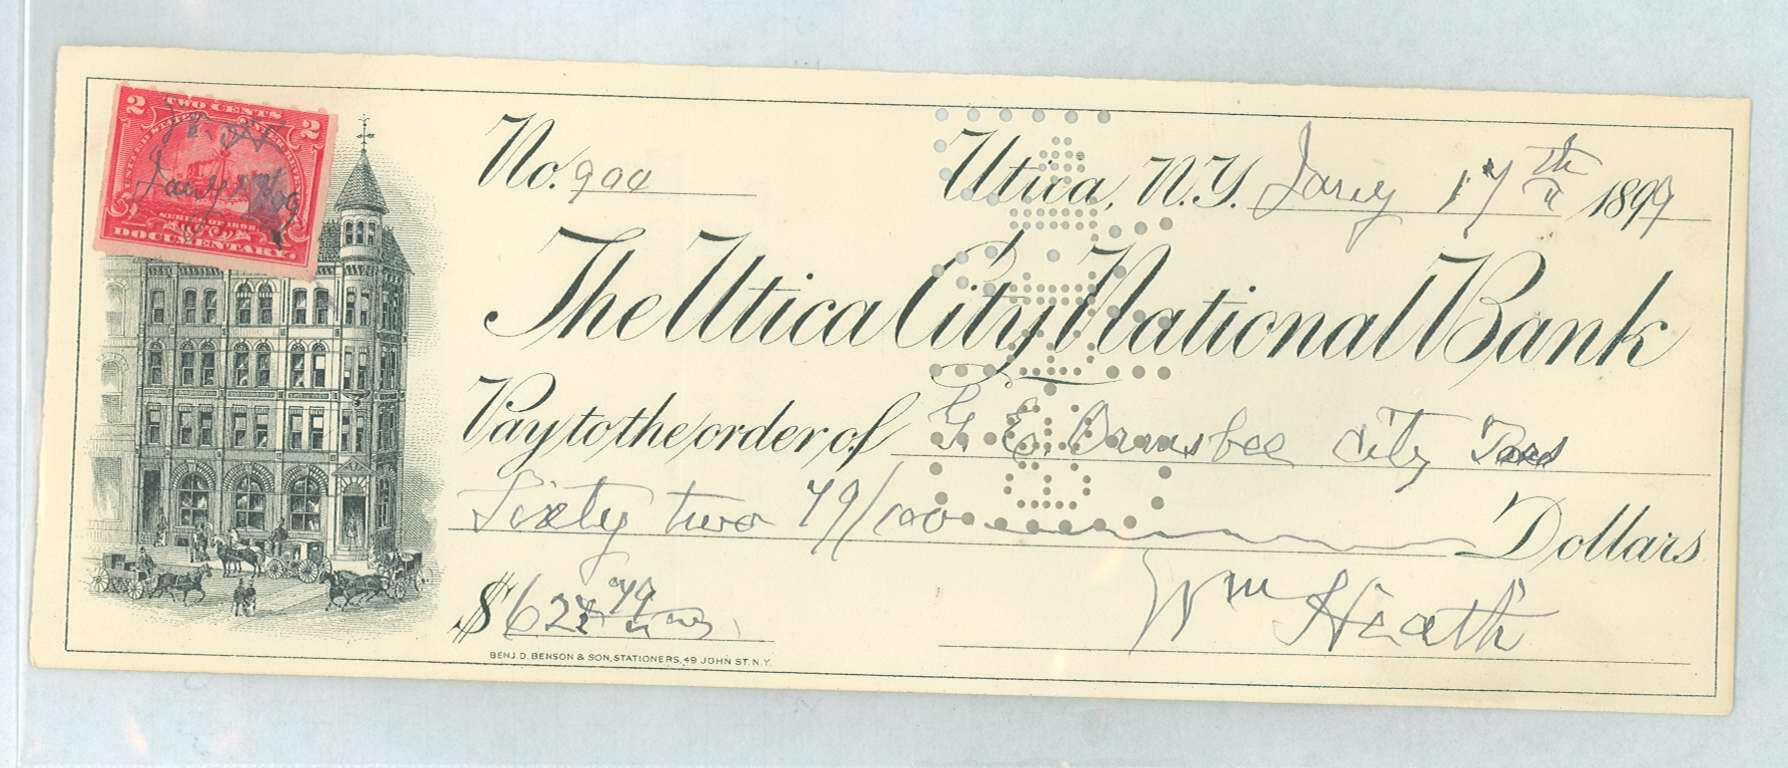 2 TWO CENTS 2
UNITED STATES INTER. REVENUE
SERIES OF 1898
DOCUMENTARY
No. 900
Utica, N.Y. Jany 17th 1899
The Utica City National Bank
Pay to the order of G. E. City Treas
Sixty two 79/100 Dollars
$62 79
Wm Heath
BENJ. D. BENSON & SON, STATIONERS, 49 JOHN ST. N.Y.